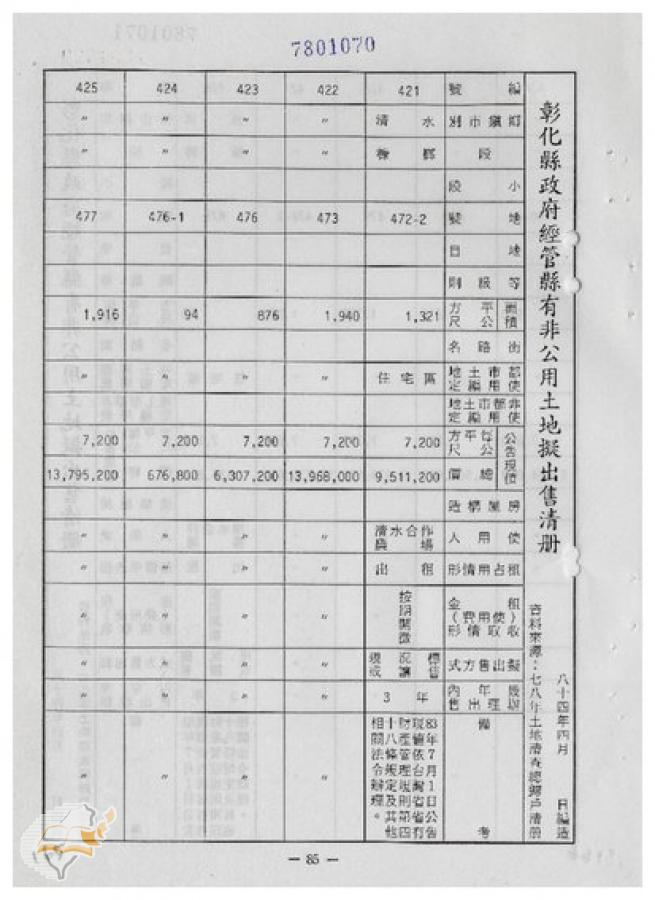 7801070
彰化縣政府經管縣有非公用土地擬出售清册
資料來源：七八年土地清查總歸戶清册
八十四年四月　日編造
編號 421 422 423 424 425
鄉鎮市別 水清 〃 〃 〃 〃
段 〃 〃 〃 〃
小段
地號 472-2 473 476 476-1 477
地目
等級
面積 平方公尺 1,321 1,940 876 94 1,916
街路名
都市土地使用編定 住宅區 〃 〃 〃 〃
非都市土地使用編定
公告現值 每平方公尺 7,200 7,200 7,200 7,200 7,200
總價 9,511,200 13,968,000 6,307,200 676,800 13,795,200
房屋構造
使用人 清水合作農場 〃 〃 〃 〃
租占用情形 出租 〃 〃 〃 〃
租金（使用費）收取情形 按期開徵 〃 〃 〃 〃
擬出售方式 現況標售或讓售 〃 〃 〃 〃
年內辦理出售 3年 〃 〃 〃 〃
備考 83年7月1日公告現值依台灣省省有財產管理規則第四十八條規定及其他相關法令辦理。 〃 〃 〃 〃
— 85 —